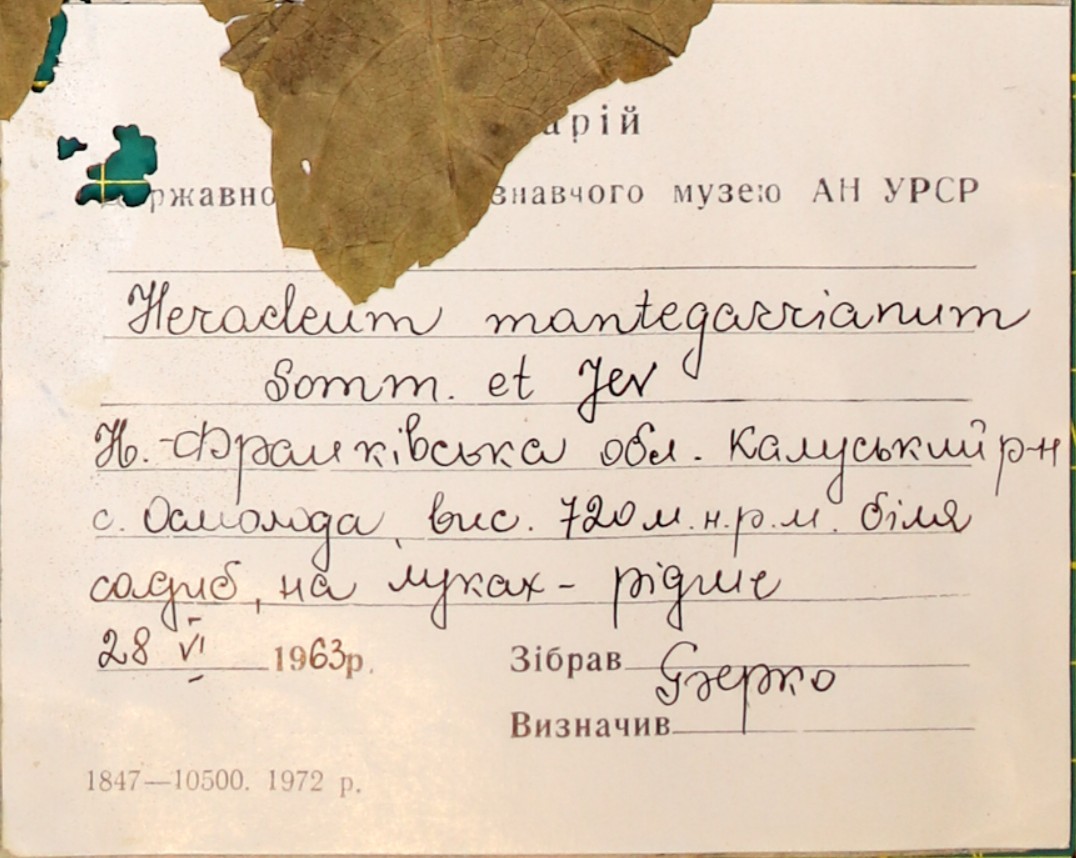 арій
ржавно знавчого музею АН УРСР
Heracleum mantegazzianum
Somm. et Lev
Ів.-Франківська обл. Калуський р-н
с. Осмолода, вис. 720 м.н.р.м. біля
садиб, на луках - рідше
28 VI 1963р.
Зібрав
Визначив
1847—10500. 1972 р.